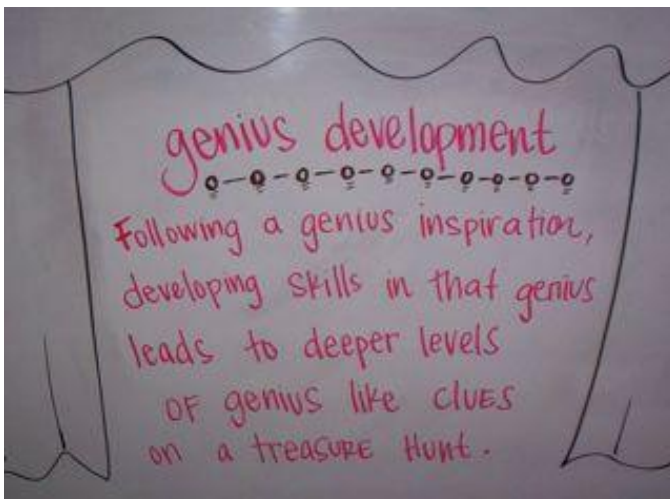 genius development
Following a genius inspiration,
developing skills in that genius
leads to deeper levels
OF genius like clUES
on a tREASURE Hunt.